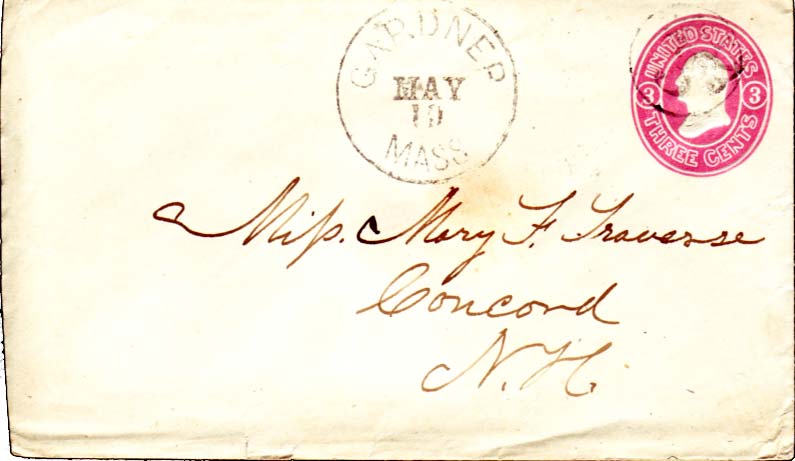 GARDNER
MAY
19
MASS
UNITED STATES
3 3
THREE CENTS
Miſs. Mary F. Traverse
Concord
N.H.